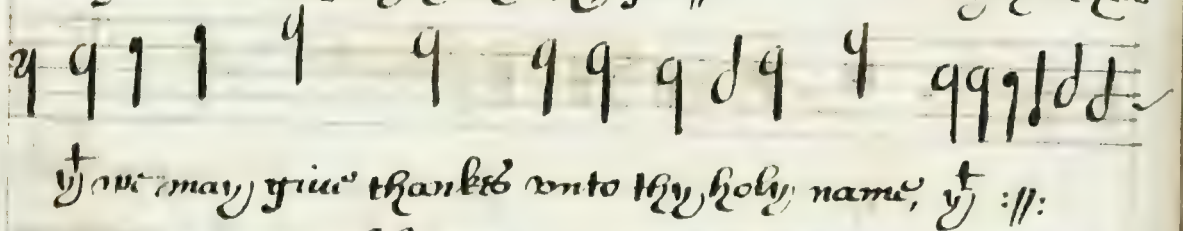 yͭ we may giue thankes vnto thy holy name, yͭ ://: